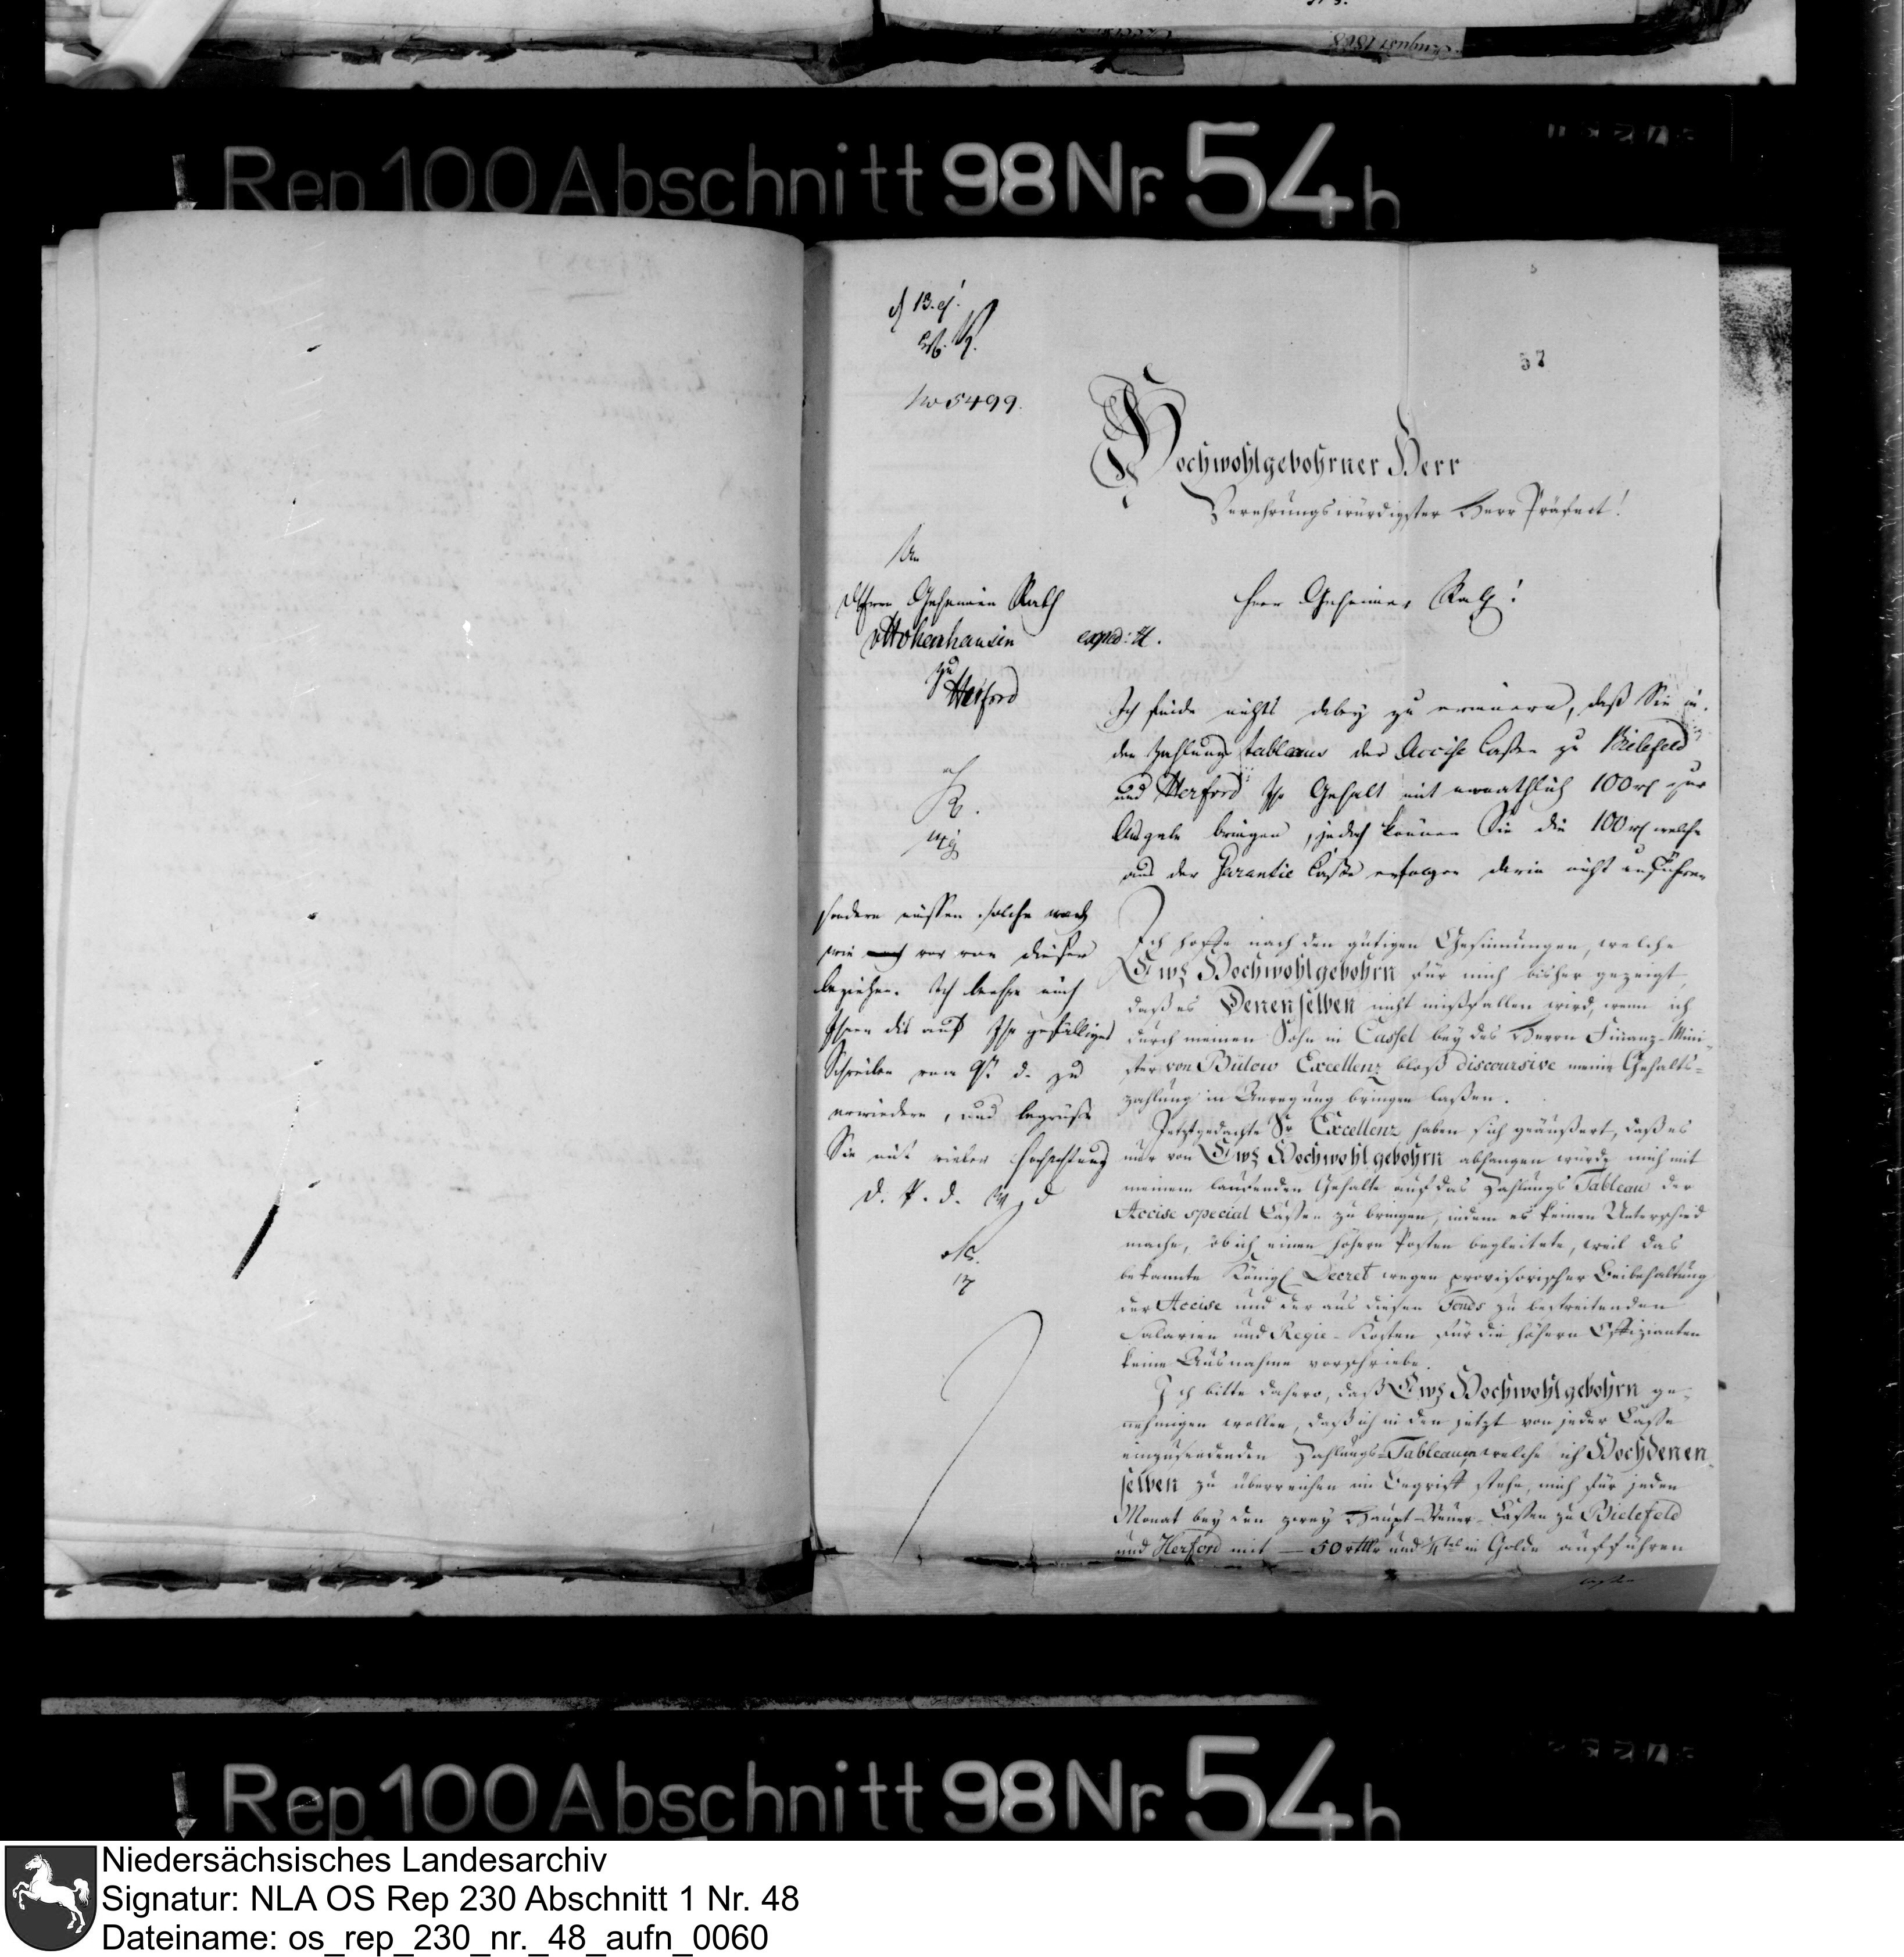 August 1808
Rep 100 Abschnitt 98 Nr. 54 h
13. ej.
No 5499
37
Hochwohlgebohrner Herr
Verehrungswürdigster Herr Präfect!
An
Herrn Geheimen Rath
v Hohenhausen
zu
Herford
exped: H.
Herr Geheimer Rath!
Ich finde nichts dabey zu erinnern, daß Sie in
den Zahlungs tableaus der Accise Cassen zu Bielefeld
und Herford Ihr Gehalt mit monathlich 100 rt zur
Ausgabe bringen, jedoch können Sie die 100 rt welche
aus der Garantie Casse erfolgen darin nicht anführen
sondern müssen solche nach
wie vor von dieser
beziehen. Ich beehre mich
Ihnen dis auf Ihr gefälliges
Schreiben vom 9t d. zu
erwiedern, und begrüße
Sie mit vieler Hochachtung
D. P. d. W. D
Ich hoffe nach den gütigen Gesinnungen, welche
Ewg Hochwohlgebohrn für mich bisher gezeigt,
daß es Denenselben nicht mißfallen wird, wenn ich
durch meinen Sohn in Cassel bey des Herrn Finanz-Mini-
ster von Bülow Excellenz bloß discoursive meine Gehalts-
zahlung in Anregung bringen laßen.
Jetztgedachte Sr Excellenz haben sich geäußert, daß es
nur von Ewg Hochwohlgebohrn abhangen würde mich mit
meinem laufenden Gehalte auf das Zahlungs Tableau der
Accise special Cassen zu bringen, indem es keinen Unterschied
mache, ob ich einen höhern Posten begleitete, weil das
bekannte Königl Decret wegen provisorischer Beibehaltung
der Accise und der aus diesen Fonds zu bestreitenden
Salarien und Regie-Kosten für die höhern Offizianten
keine Ausnahme vorschriebe.
Ich bitte dahero, daß Ewg Hochwohlgebohrn ge-
nehmigen wollen, daß ich in den jetzt von jeder Casse
einzusendenden Zahlungs-Tableaux, welche ich Hochdenen-
selben zu überreichen im Begriff stehe, mich für jeden
Monat bey den zwey Haupt-Steuer-Cassen zu Bielefeld
und Herford mit — 50 rthlr und 1/4tel in Golde aufführen
Rep 100 Abschnitt 98 Nr. 54 h
Niedersächsisches Landesarchiv
Signatur: NLA OS Rep 230 Abschnitt 1 Nr. 48
Dateiname: os_rep_230_nr._48_aufn_0060